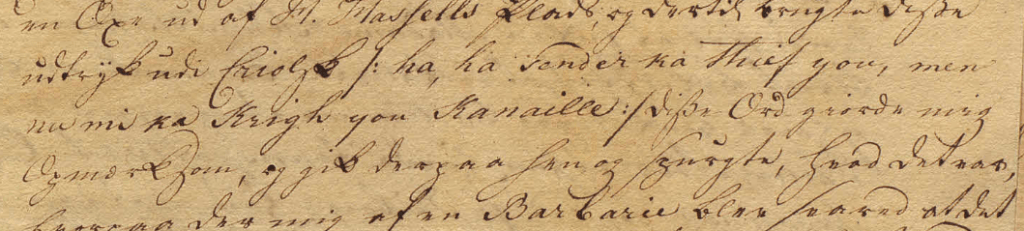 en Oxe ud af H. Massells Plads, og dertil brugte disse
udtryk udi Criolsk /: ha, ha sonder ka thief you, men
nu mi ka Krigh you Kanaille :/ disse Ord giorde mig
Opmærksom, og gik derpaa hen og spurgte, hvad det var,
hvorpaa der mig af en Barbarie blev svared at det